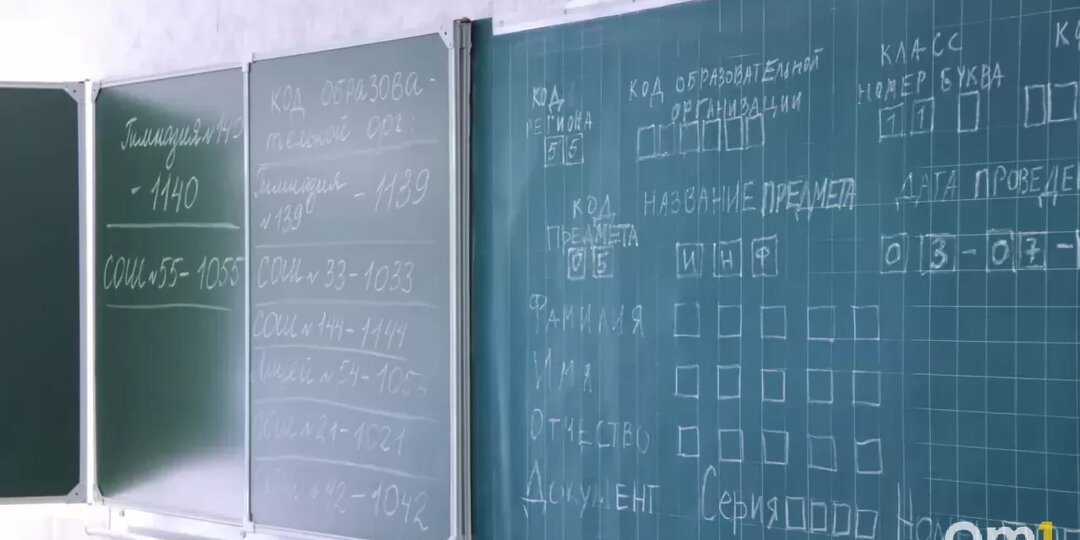 Гимназия №140
- 1140
СОШ №55-1055
КОД ОБРАЗОВА-
тельной орг:
Гимназия
№139
- 1139
СОШ №33-1033
СОШ №144-1144
Лицей №54-1054
СОШ №21-1021
№42-1042
КОД
РЕГИОНА
55
КОД ОБРАЗОВАТЕЛЬНОЙ
ОРГАНИЗАЦИИ
КЛАССС
НОМЕР БУКВА
11
КОД
ПРЕДМЕТА
05
НАЗВАНИЕ ПРЕДМЕТА
ИНФ
ДАТА ПРОВЕДЕ
03-07-
ФАМИЛИЯ
ИМЯ
ОТЧЕСТВО
ДОКУМЕНТ Серия
Om1